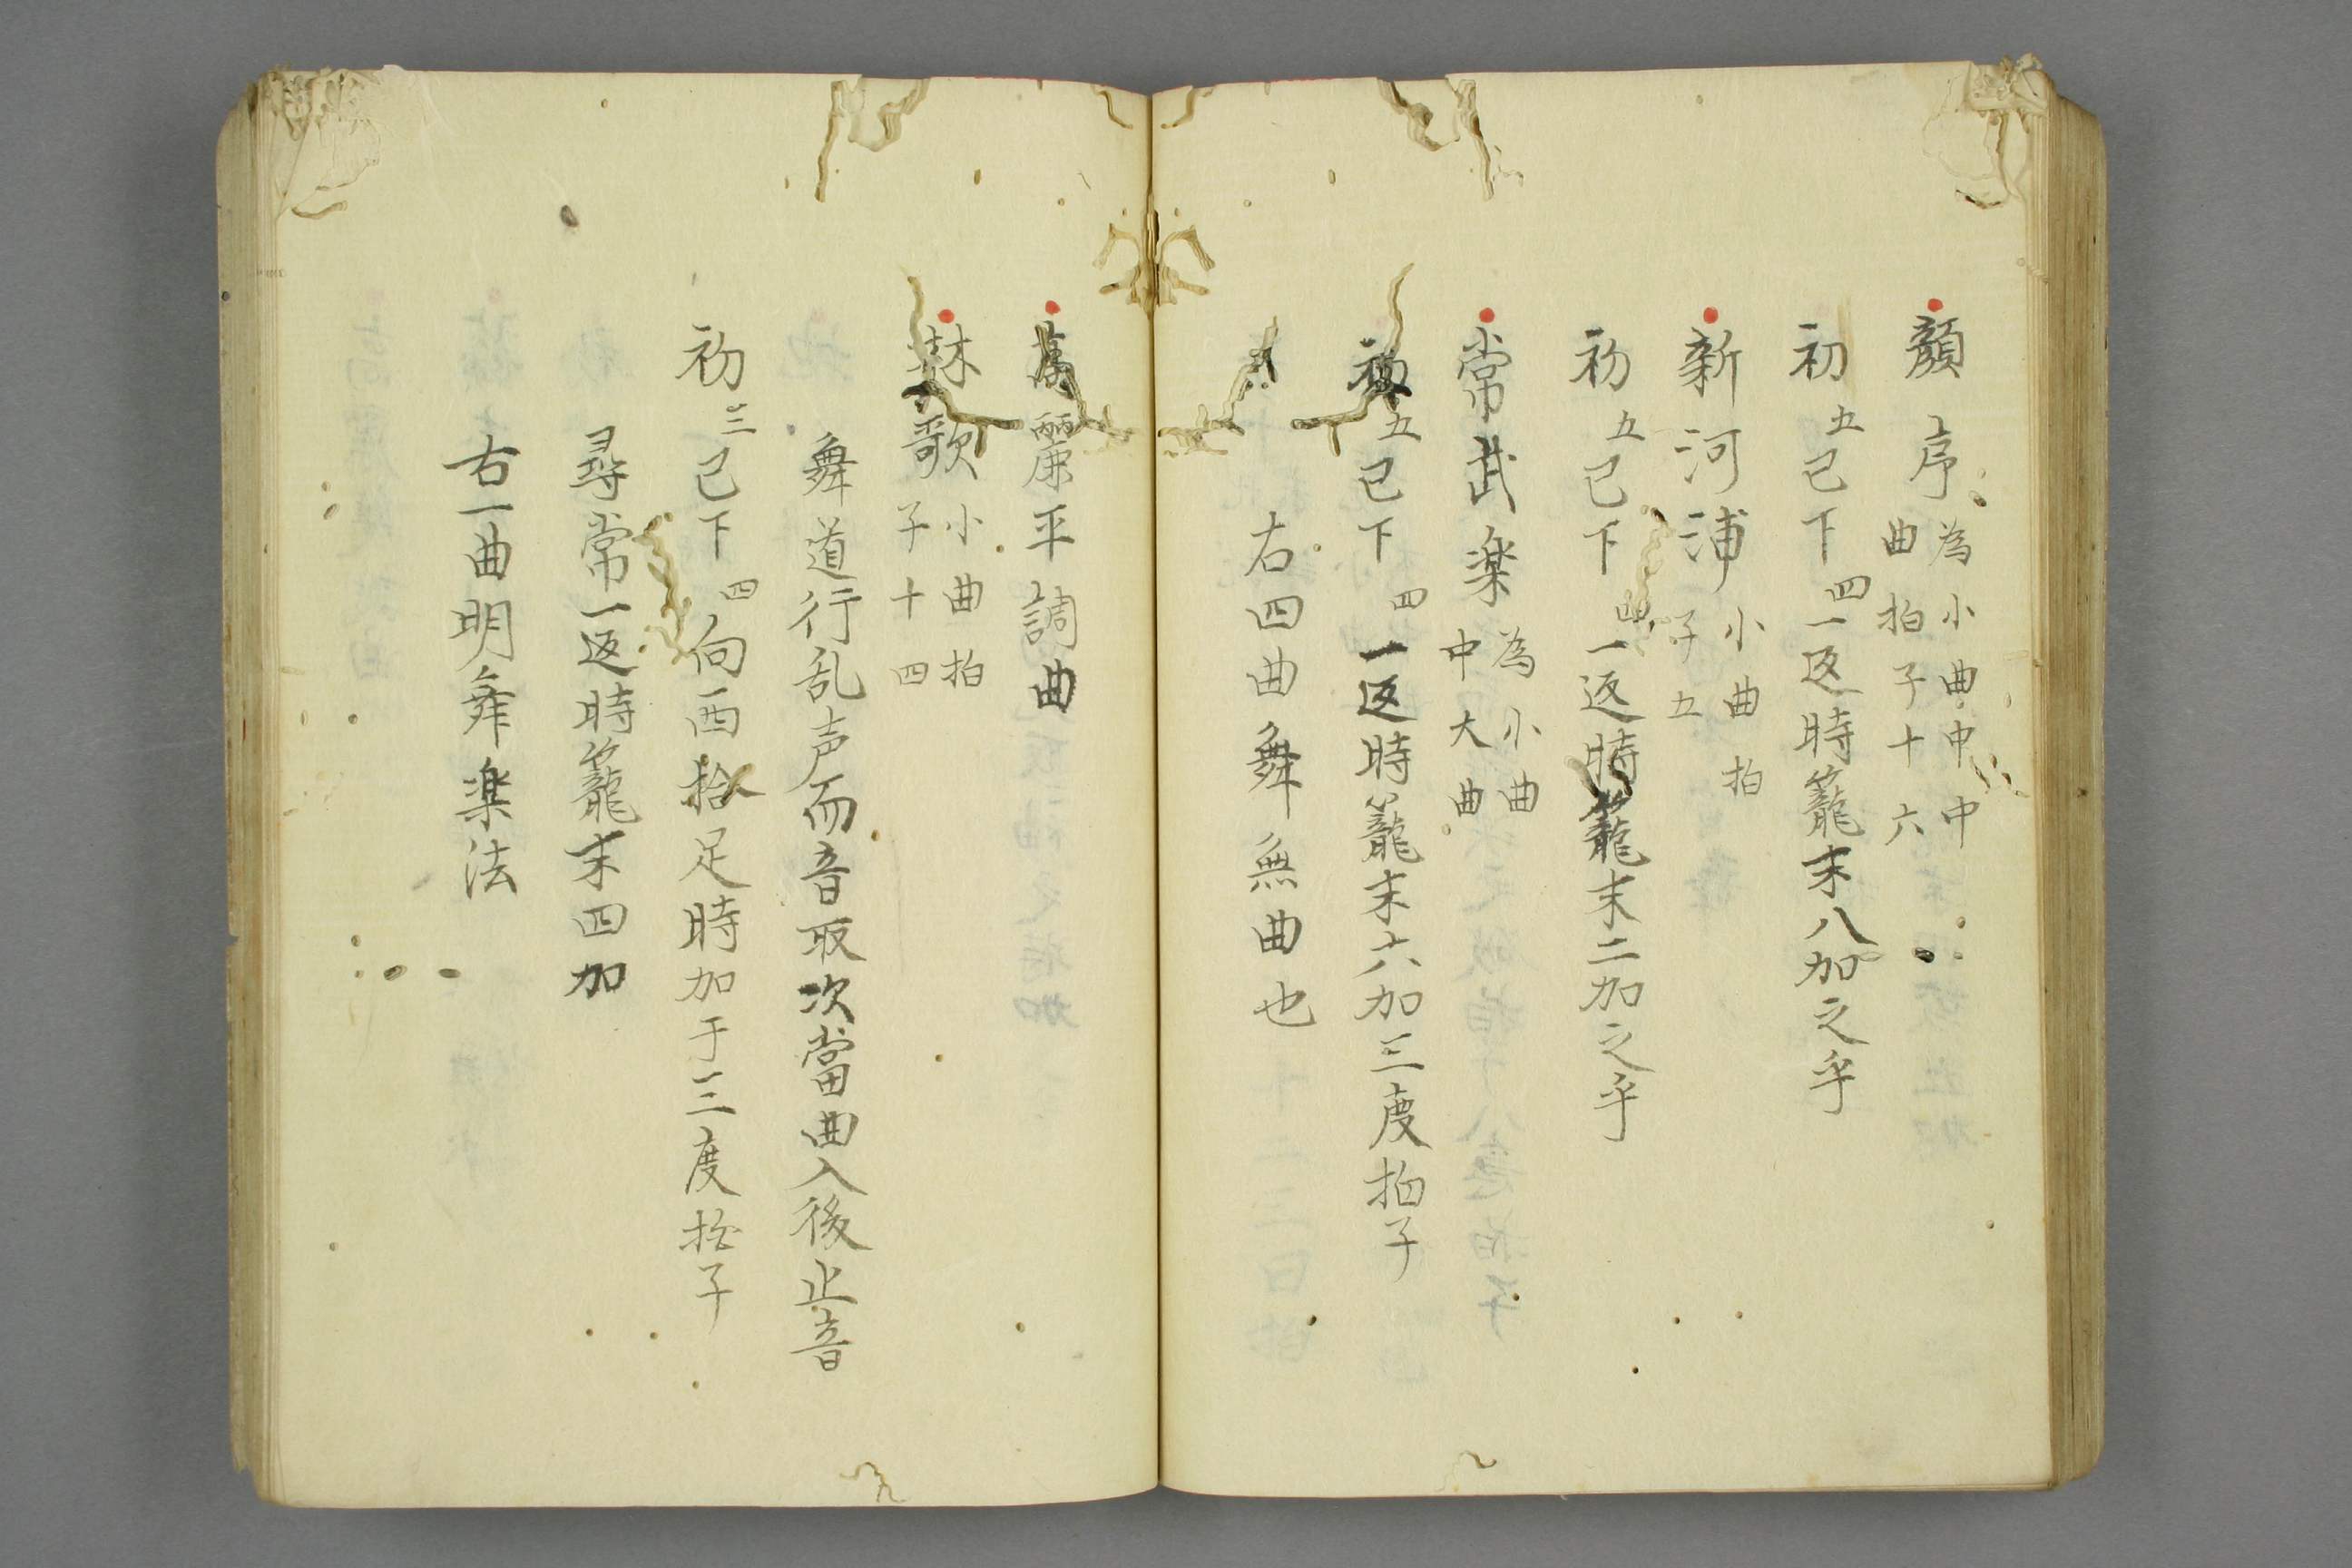 顔序 為小曲中中
曲拍子十六
初五己下四一返時籠末八加之乎
新河浦 小曲拍
子五
初五己下四一返時籠末二加之乎
常武楽 為小曲
中大曲
初五己下四一返時籠末六加三度拍子
右四曲舞無曲也
高麗平調曲
林歌 小曲拍
子十四
舞道行乱声而音取次當曲入後止音
初三己下四向西拾足時加于三度拍子
尋常一返時籠末四加
右一曲明舞楽法